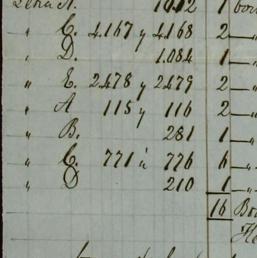 Letra A. 1012 1
" C. 4.167 y 4.168 2 "
" D. 1.084 1 "
" E. 2478 y 2479 2 "
" A 115 y 116 2 "
" B. 281 1 "
" C. 771 á 776 6 "
" D 210 1 "
16